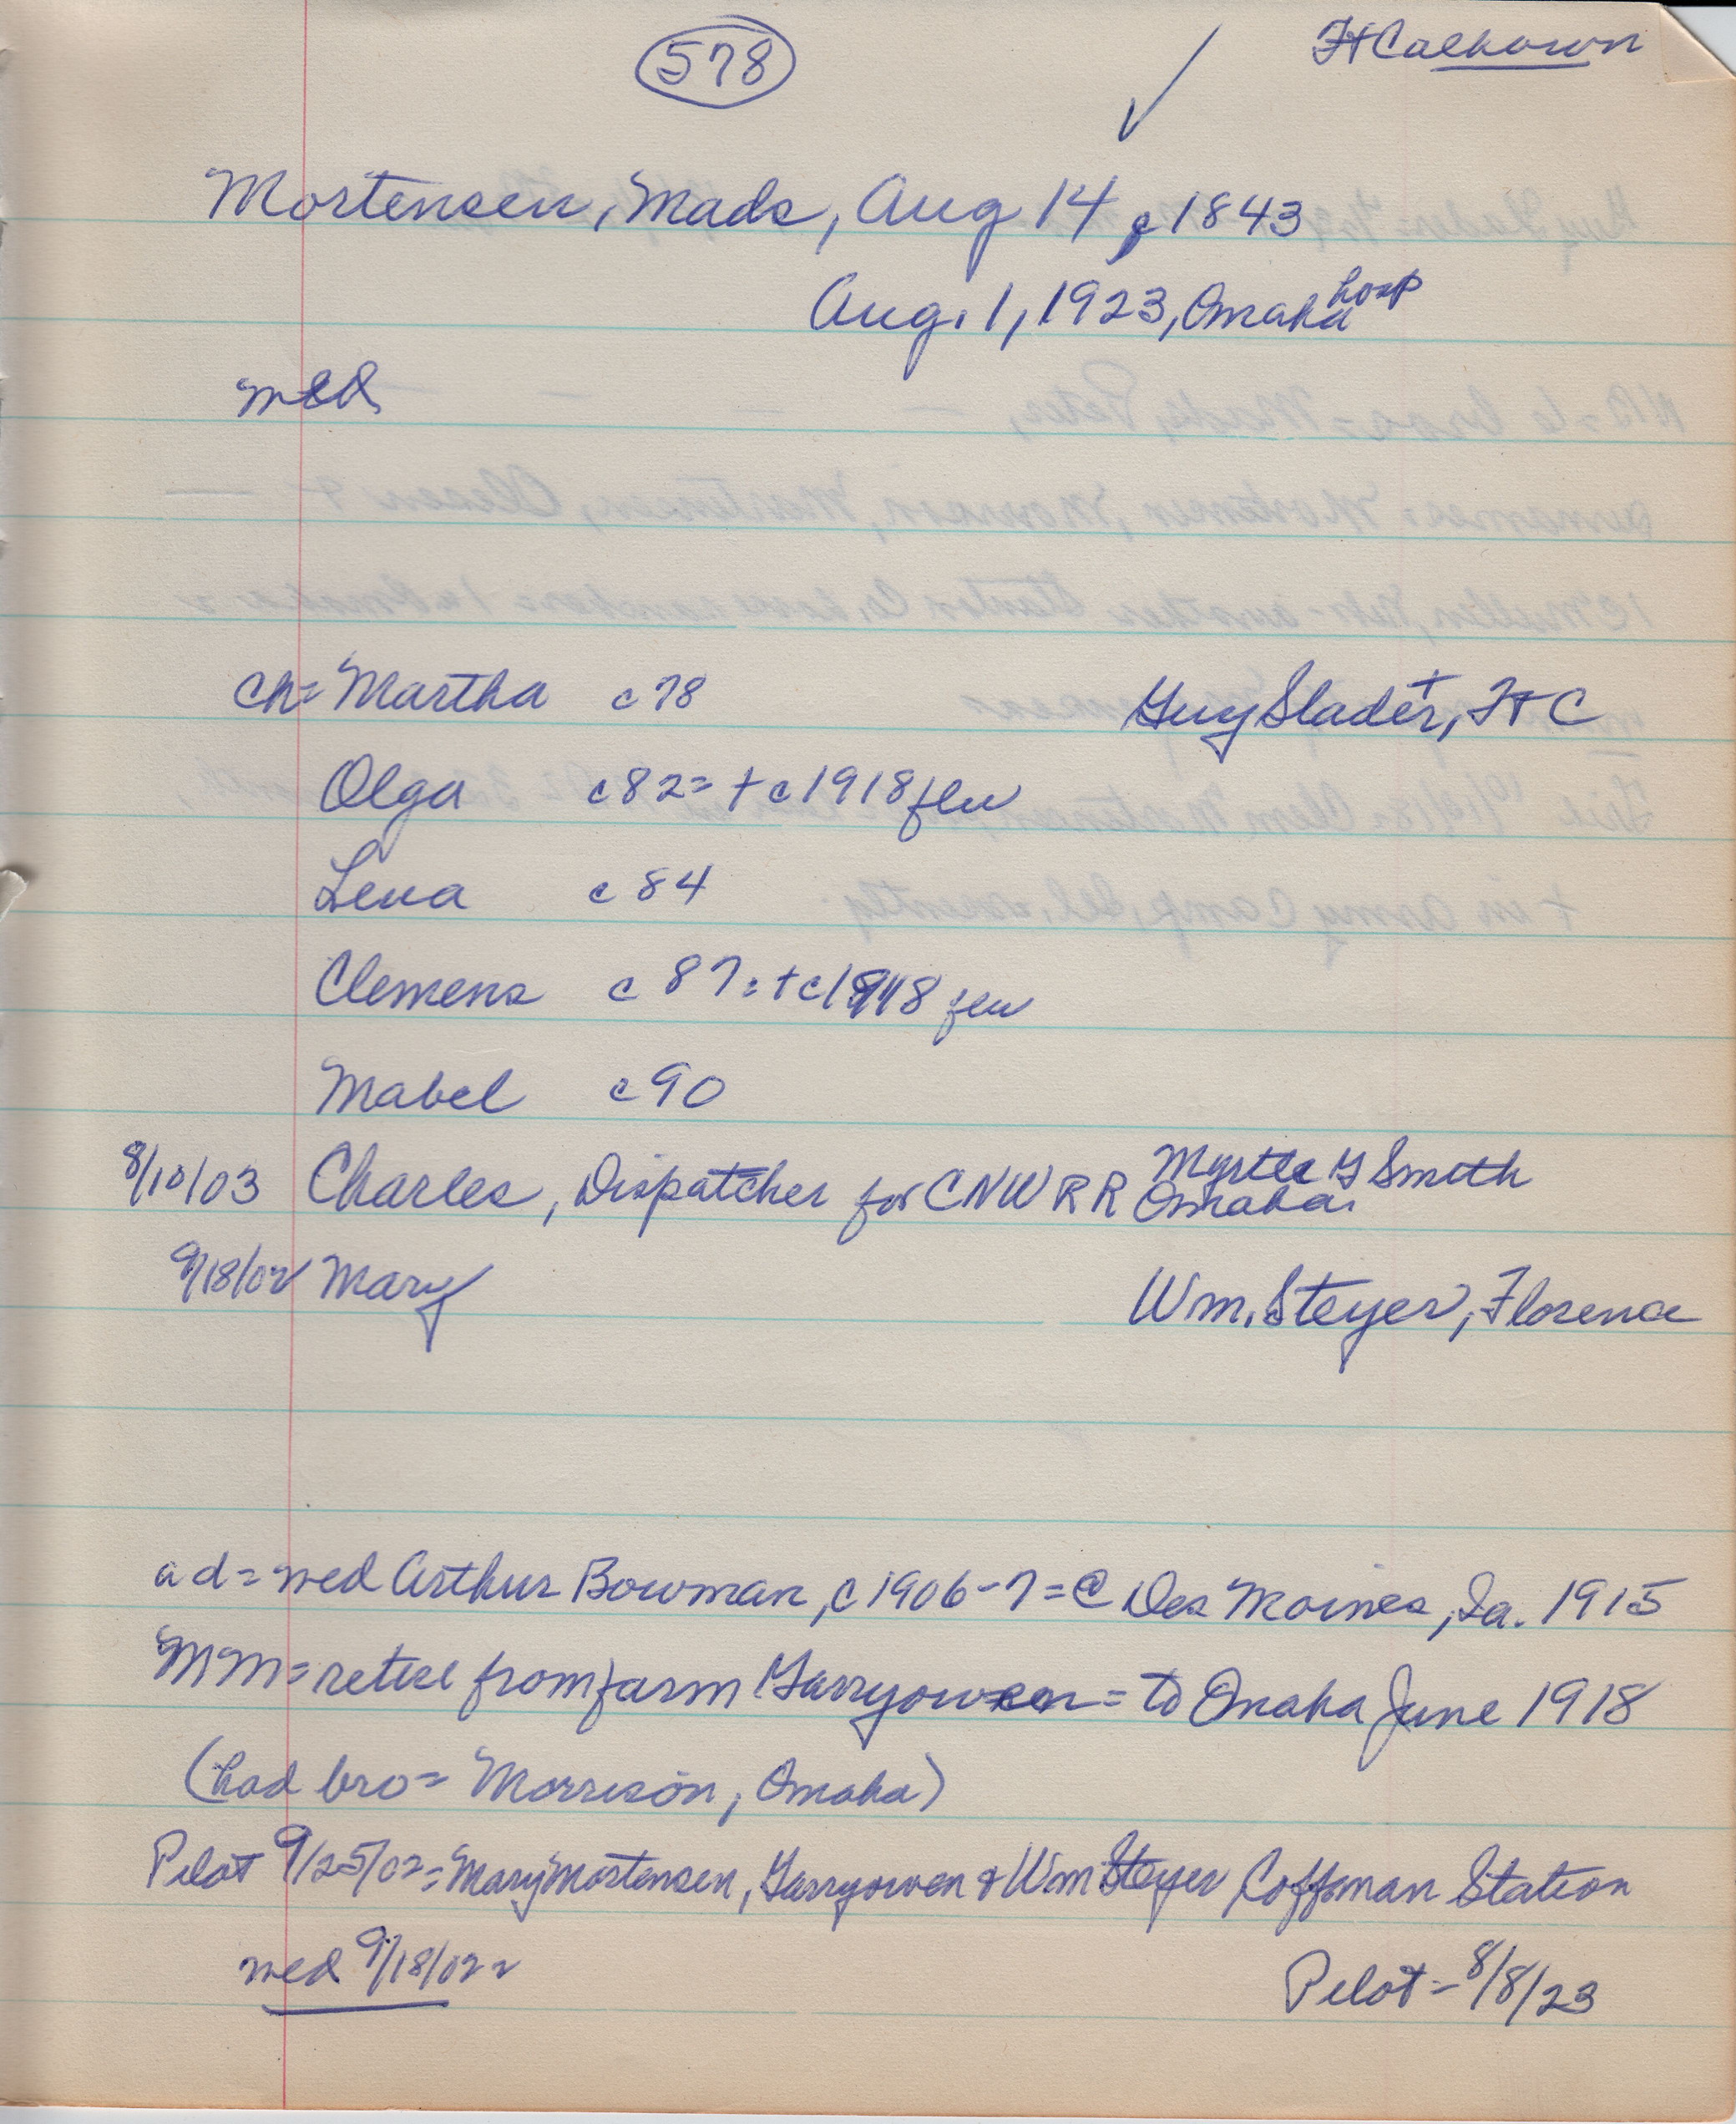 578
Ft Calhoun
Mortensen, Mads, Aug 14, 1843
Aug. 1, 1923, Omaha hosp
med
ch= Martha c78 Guy Slader+, Ft C
Olga c82= + c1918 flu
Lena c84
Clemens c87= + c1918 flu
Mabel c90
8/10/03 Charles, Dispatcher for CNWRR Myrtle G Smith Omaha.
9/18/02 Mary Wm. Steyer, Florence
ad= med Arthur Bowman, c1906-7= @ Des Moines, Ia. 1915
MM= retire from farm Garryowen = to Omaha June 1918
(had bro= Morrison, Omaha)
Pilot 9/25/02= Mary Mortensen, Garryowen & Wm Steyer Coffman Station
med 9/18/02
Pilot - 8/8/23